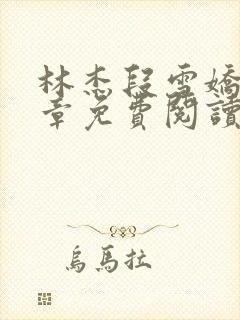 林杰段雪嬌
章免費閱讀
烏馬拉